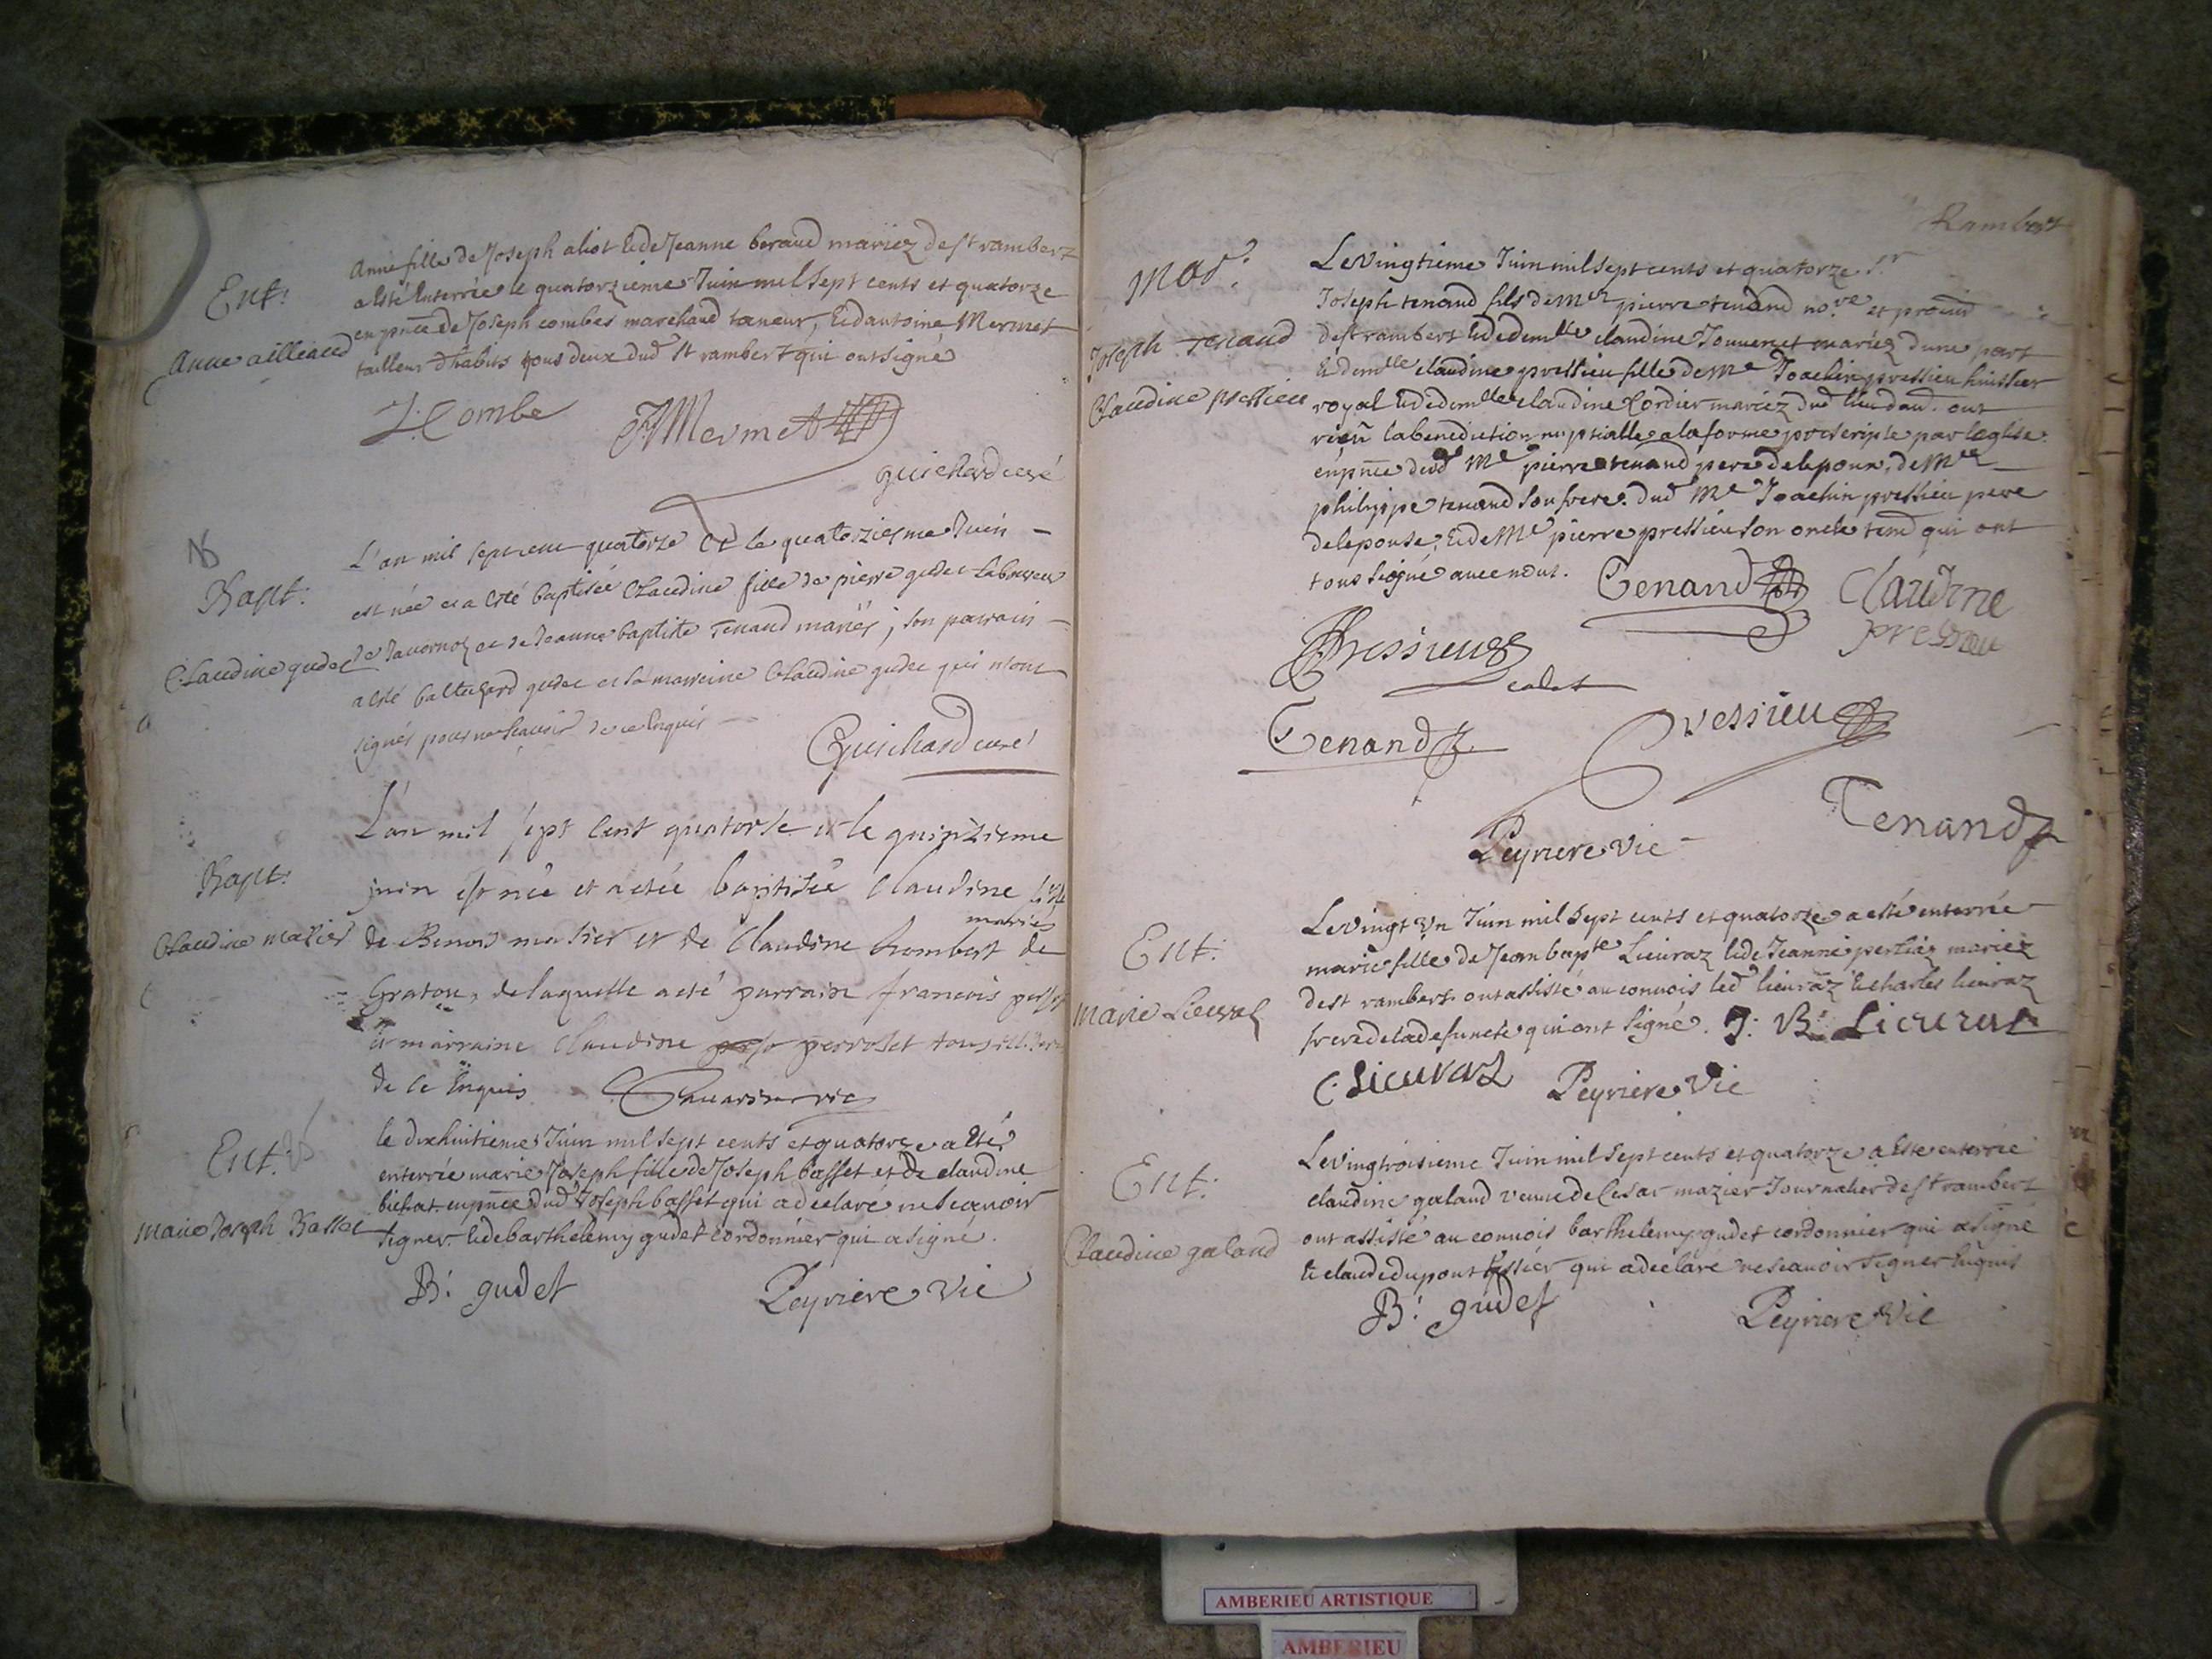 Ent:
Anne ailleaud
Anne fille de Joseph aliot & de Jeanne beraud mariez de st rambert
a esté Enterrée le quatorzieme Juin mil sept cents et quatorze
en pnce de Joseph combes marchand taneur, & d'antoine Mermet
tailleur d'habits tous deux dud st rambert qui ont signé
J. Combe
A Mermet
guichard curé
Bapt:
Claudine gudet
L'an mil sept cent quatorze et le quatorziesme Juin
est née et a esté baptisée Claudine fille de pierre gudet laboureur
de Javornoz et de Jeanne baptiste Tenand mariés, son parrain
a esté baltazard gudet et sa marreine Claudine gudet qui n'ont
signés pour ne sçavoir de ce Enquis
Guichard curé
Bapt:
Claudine mazier
L'an mil sept cent quatorse et le quinzieme
juin est née et a etée baptisée Claudine fille
mariés
de Benois masier et de Claudine hombert de
Graton, delaquelle a eté parrain francois
et marraine Claudine perroset tous
de ce Enquis
vic
Ent:
marie Joseph Basset
le dixhuitieme Juin mil sept cents et quatorze a Eté
enterrée marie Joseph fille de Joseph basset et de claudine
bichat en pnce dud Joseph basset qui a declaré ne scavoir
signer. & de barthelemy gudet cordonnier qui a signé.
B: gudet
Peyriere Vic
Rambert
Mar:
Joseph tenand
Claudine pressieu
Le Vingtieme Juin mil sept cents et quatorze Sr
Joseph tenand fils de Mre pierre tenand nore et procur
de st rambert & de demlle claudine Jouvenet mariez d'une part
& demlle claudine pressieu fille de Me Joachin pressieu huissier
royal & de demlle claudine Cordier mariez dud lieu dau. ont
receu la benediction nuptialle a la forme prescripte par leglise
en pnce dud Me pierre tenand pere de lepoux, de Mre
philippe tenand son frere. dud Me Joachin pressieu pere
de lepouse, & de Me pierre pressieu son oncle qui ont
tous signé avec nous.
Tenand
Claudine
pressieu
Pressieu
cadet
Tenand
Pressieu
Peyriere Vic
Tenand
Ent:
Marie Lieuraz
Le Vingt Un Juin mil sept cents et quatorze a esté enterrée
marie fille de Jean bapte Lieuraz & de Jeanne mariez
de st rambert ont assisté au convois led lieuraz & charles lieuraz
frere de la defuncte qui ont signé. J: B: Lieuraz
C: Lieuraz
Peyriere Vic
Ent:
Claudine galand
Le Vingtroisieme Juin mil sept cents et quatorze a Este enterrée
claudine galand veuve de Cesar mazier Journalier de st rambert
ont assisté au convois barthelemy gudet cordonnier qui a signé
& claude dupont tissier qui a declaré ne scavoir signer Enquis
B: gudet
Peyriere Vic
AMBERIEU ARTISTIQUE
AMBERIEU